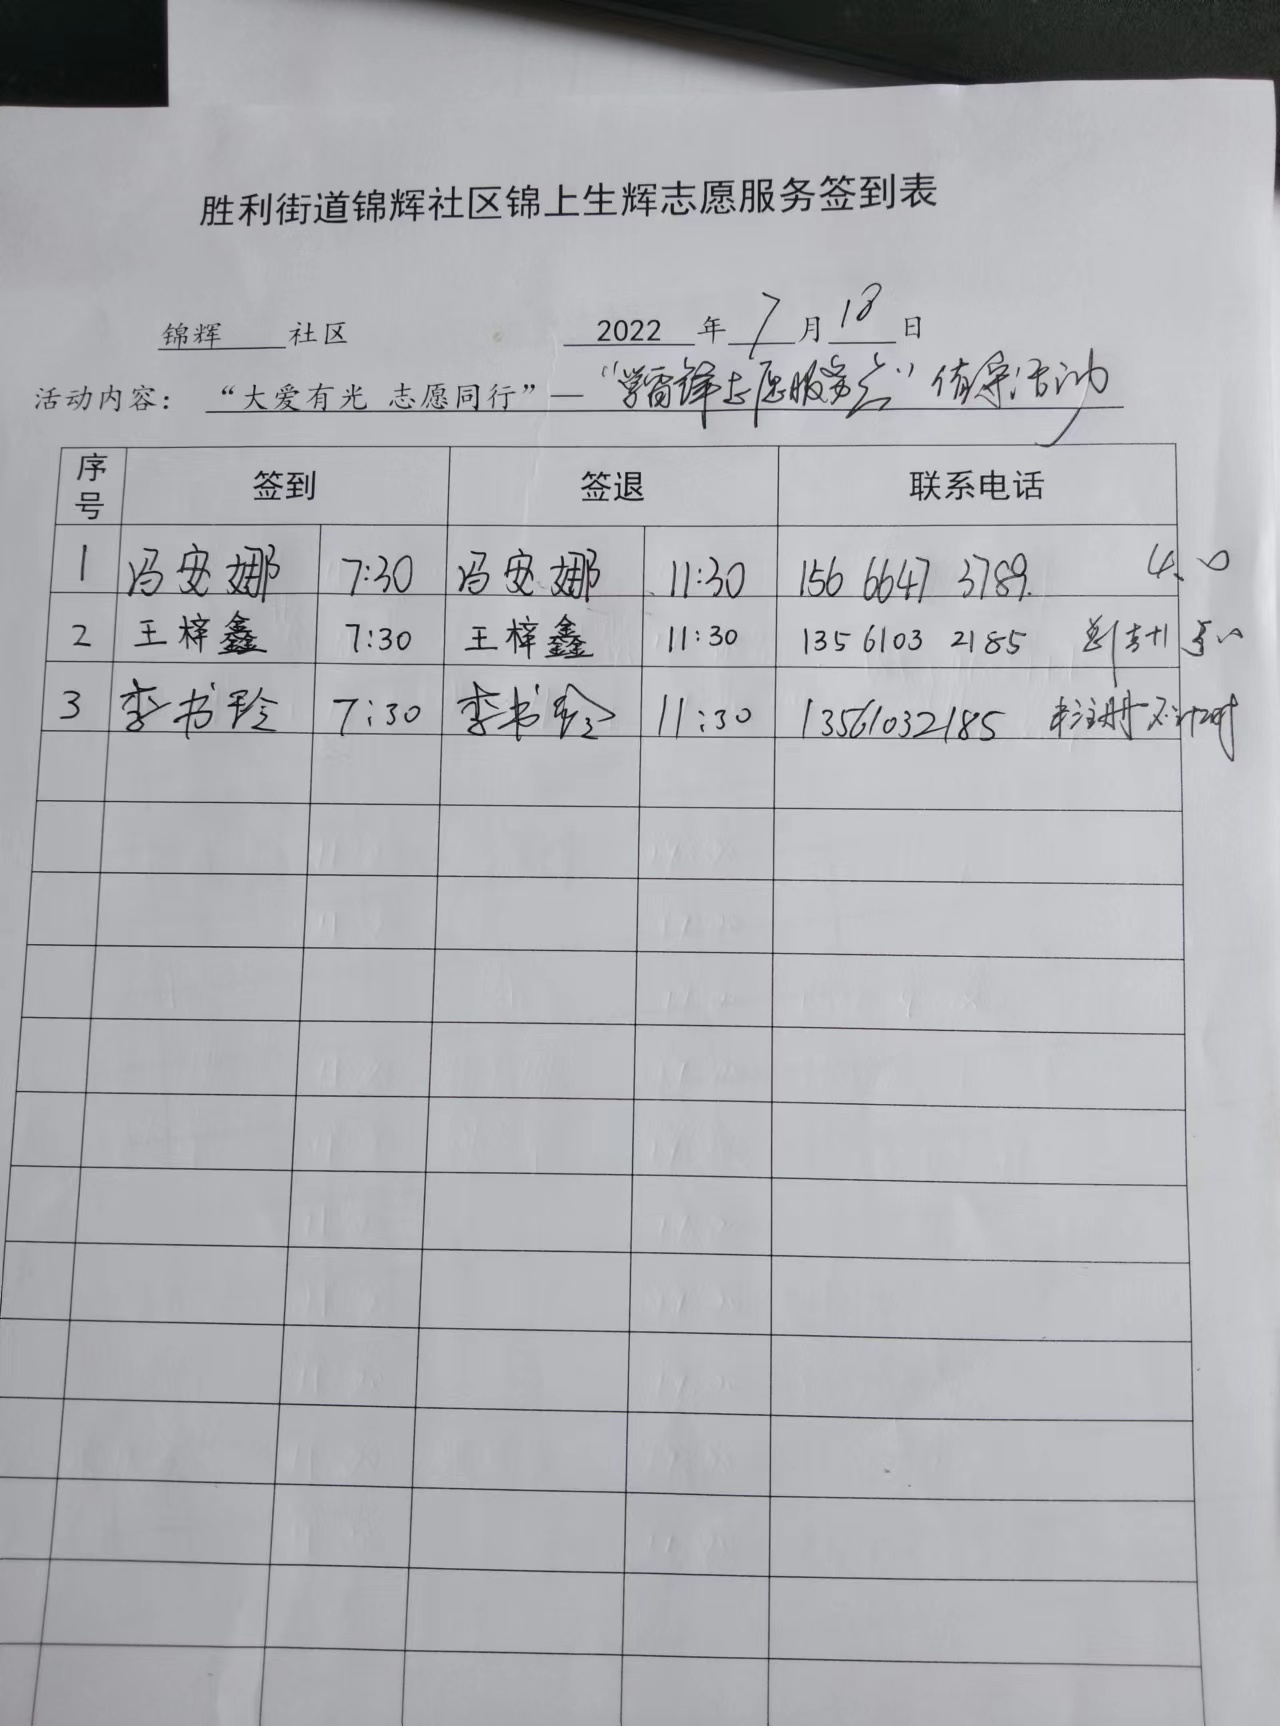 胜利街道锦辉社区锦上生辉志愿服务签到表
锦辉 社区 2022 年 7 月 18 日
活动内容： “大爱有光 志愿同行”—“学雷锋志愿服务点”值守活动
序号 签到 签退 联系电话
1 冯安娜 7:30 冯安娜 11:30 156 6647 3789.
2 王梓鑫 7:30 王梓鑫 11:30 135 6103 2185
3 李书玲 7:30 李书玲 11:30 13561032185 未注册 不计时